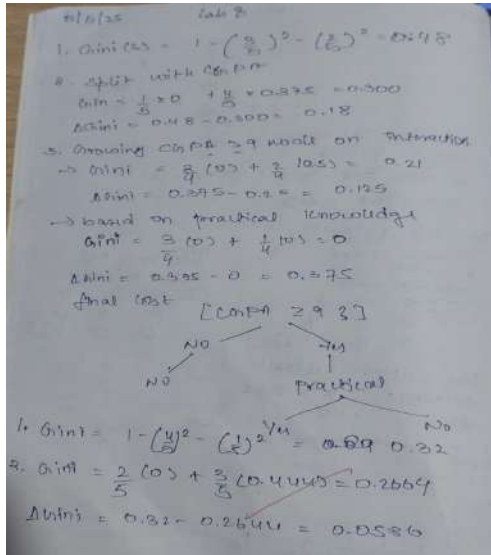 Lab 8
1. Gini (S) = 1 - (3/5)² - (2/5)² = 0.48
2. Split with CGPA
Gini = 1/5 × 0 + 4/5 × 0.375 = 0.300
ΔGini = 0.48 - 0.300 = 0.18
3. Growing CGPA ≥ 9 node on Interaction
→ Gini = 2/4 (0) + 2/4 (0.5) = 0.25
ΔGini = 0.375 - 0.25 = 0.125
→ based on practical knowledge
Gini = 3/4 (0) + 1/4 (0) = 0
ΔGini = 0.375 - 0 = 0.375
final
[CGPA ≥ 9 ?]
NO Yes
NO practical
Yes No
1. Gini = 1 - (4/5)² - (1/5)² = 0.32
2. Gini = 2/5 (0) + 3/5 (0.444) = 0.2664
ΔGini = 0.32 - 0.2644 = 0.0536